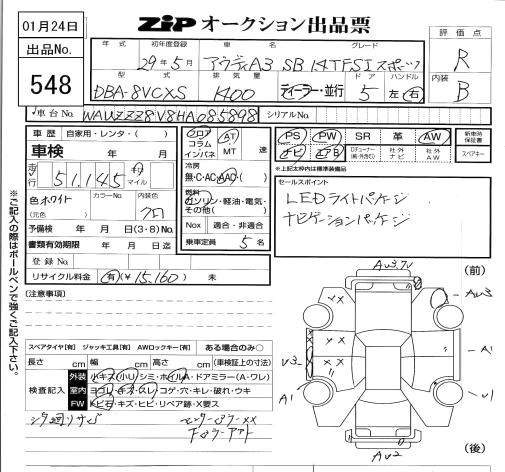 01月24日
ZiP オークション出品票
評価点
出品No.
548
年式 初年度登録 車名 グレード
29年5月 アウディA3 SB 14TFSI スポーツ
R
型式 排気量 ドア ハンドル
DBA-8VCXS 1400 ディーラー・並行 5 左・右
内装
B
車台No. WAUZZZ8V8HA085898 シリアルNo.
車歴 自家用・レンタ・( )
車検
走行 51,145 キロ マイル
色 ホワイト
(元色)
カラーNo.
内装色 クロ
予備検 年 月 日(3・8)No.
書類有効期限 年 月 日迄
登録No.
リサイクル料金 有(¥15,160) 未
フロア
コラム
インパネ
AT
MT
速
冷房
無・C・AC・AAC・( )
燃料
ガソリン・軽油・電気・
その他( )
Nox 適合・非適合
乗車定員 5名
PS PW SR 革 AW
ナビ エアB Dチューナー(純・外含む) 社外ナビ 社外AW
新車時保証書
スペアキー
*上記太枠内は標準装備品
セールスポイント
LEDライトパッケージ
ナビゲーションパッケージ
※ご記入の際はボールペンで強くご記入下さい。
(注意事項)
スペアタイヤ[有] ジャッキ工具[有] AWロックキー[有] ある場合のみ○
長さ cm 幅 cm 高さ cm (車検証上の寸法)
検査記入
外装 小キズ・小U シミ・ホイル A・ドアミラー(A・ワレ)
室内 ヨゴレ・キズ・スレ コゲ・穴・キレ・破れ・ウキ
FW 飛石・キズ・ヒビ・リペア跡・X要ス
シタ廻りサビ
(前)
(後)
AU3
V3
A1
A1
U1
AU2